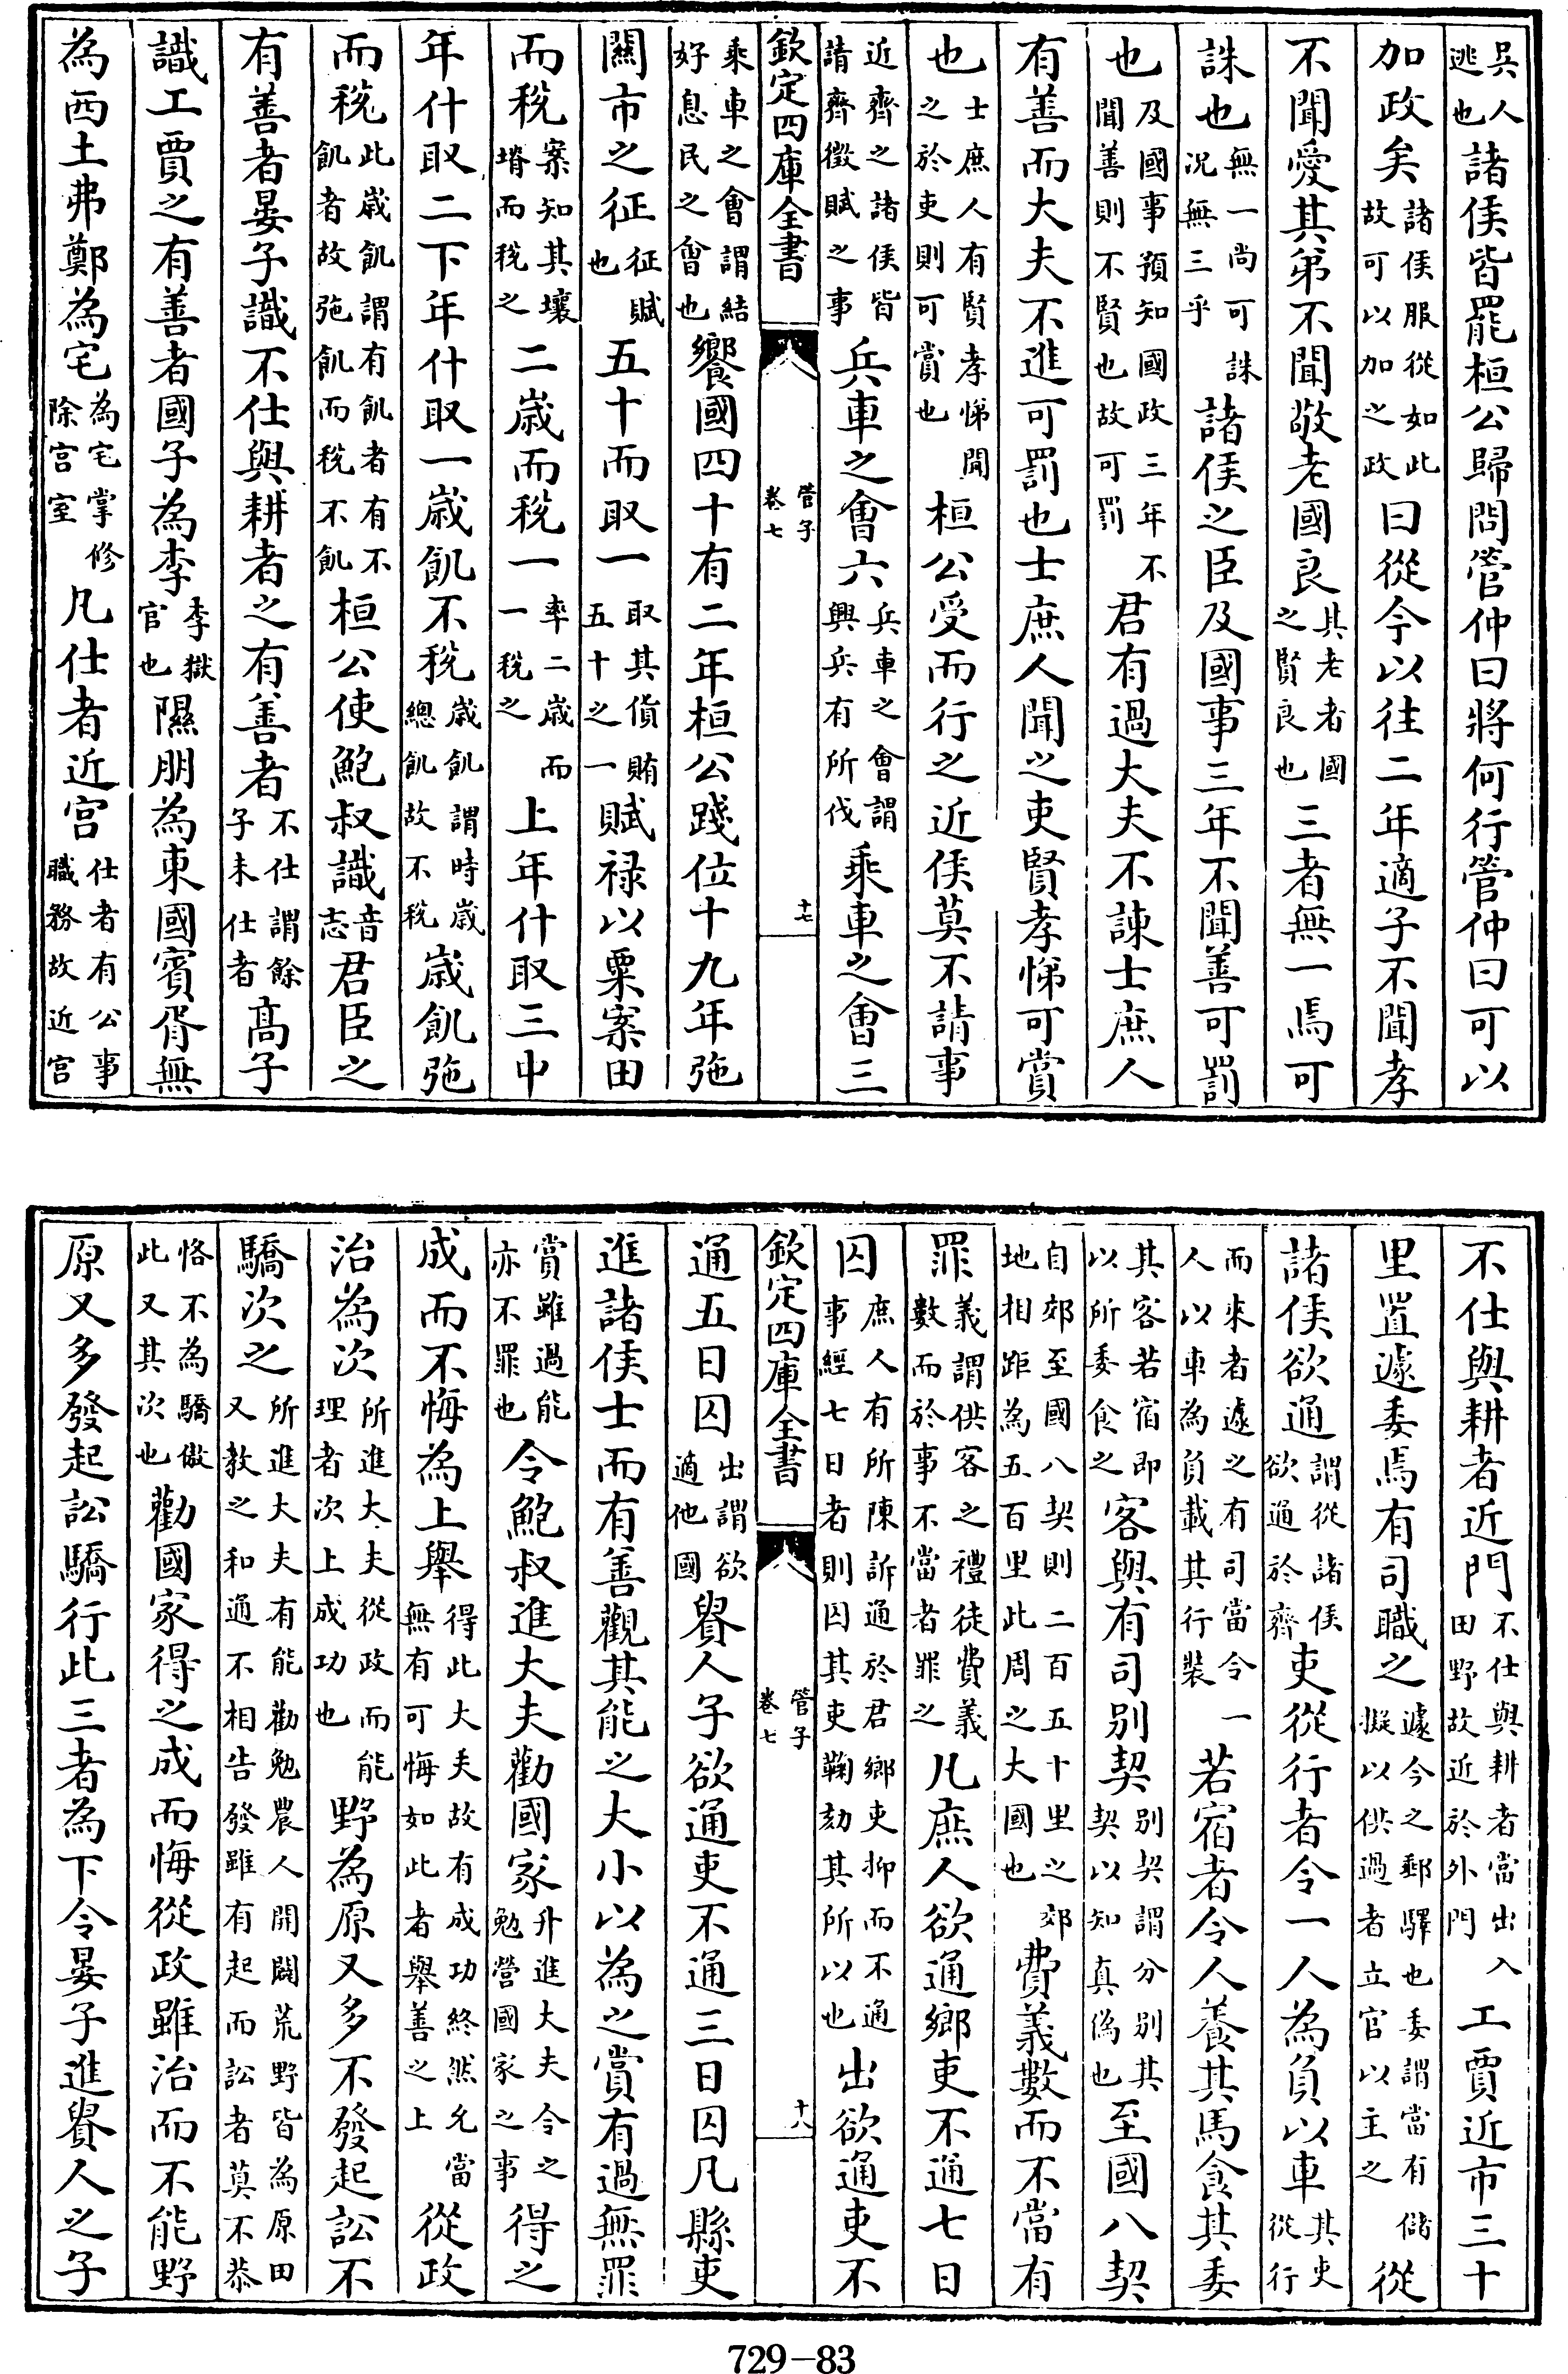 吳人逃也諸侯皆罷桓公歸問管仲曰將何行管仲曰可以
加政矣諸侯服從如此故可以加之政曰從今以往二年適子不聞孝
不聞愛其弟不聞敬老國良其老者國之賢良也三者無一焉可
誅也無一尚可誅況無三乎諸侯之臣及國事三年不聞善可罰
也及國事預知國政三年不聞善則不賢也故可罰君有過大夫不諫士庶人
有善而大夫不進可罰也士庶人聞之吏賢孝悌可賞
也士庶人有賢孝悌聞之於吏則可賞也桓公受而行之近侯莫不請事
近齊之諸侯皆請齊徵賦之事兵車之會六兵車之會謂興兵有所伐乘車之會三
欽定四庫全書 管子 卷七 十七
乘車之會謂結好息民之會也饗國四十有二年桓公踐位十九年弛
關市之征征賦也五十而取一取其貨賄五十之一賦祿以粟案田
而稅案知其壤塉而稅之二歲而稅一率二歲而一稅之上年什取三中
年什取二下年什取一歲飢不稅歲飢謂時歲總飢故不稅歲飢弛
而稅此歲飢謂有飢者有不飢者故弛飢而稅不飢桓公使鮑叔識音志君臣之
有善者晏子識不仕與耕者之有善者不仕謂餘子未仕者高子
識工賈之有善者國子為李李獄官也隰朋為東國賓胥無
為西土弗鄭為宅為宅掌修除宮室凡仕者近宮仕者有公事職務故近宮
不仕與耕者近門不仕與耕者當出入田野故近於外門工賈近市三十
里置遽委焉有司職之遽今之郵驛也委謂當有儲擬以供過者立官以主之從
諸侯欲通謂從諸侯欲通於齊吏從行者令一人為負以車其吏從行
而來者遽之有司當令一人以車為負載其行裝若宿者令人養其馬食其委
其客若宿即以所委食之客與有司別契別契謂分別其契以知真偽也至國八契
自郊至國八契則二百五十里之郊地相距為五百里此周之大國也費義數而不當有
罪義謂供客之禮徒費義數而於事不當者罪之凡庶人欲通鄉吏不通七日
囚庶人有所陳訴通於君鄉吏抑而不通事經七日者則囚其吏鞠劾其所以也出欲通吏不
欽定四庫全書 管子 卷七 十八
通五日囚出謂欲適他國貴人子欲通吏不通三日囚凡縣吏
進諸侯士而有善觀其能之大小以為之賞有過無罪
賞雖過能亦不罪也令鮑叔進大夫勸國家升進大夫令之勉營國家之事得之
成而不悔為上舉得此大夫故有成功終然允當無有可悔如此者舉善之上從政
治為次所進大夫從政而能理者次上成功也野為原又多不發起訟不
驕次之所進大夫有能勸勉農人開闢荒野皆為原田又教之和通不相告發雖有起而訟者莫不恭
恪不為驕傲此又其次也勸國家得之成而悔從政雖治而不能野
原又多發起訟驕行此三者為下令晏子進貴人之子
729-83